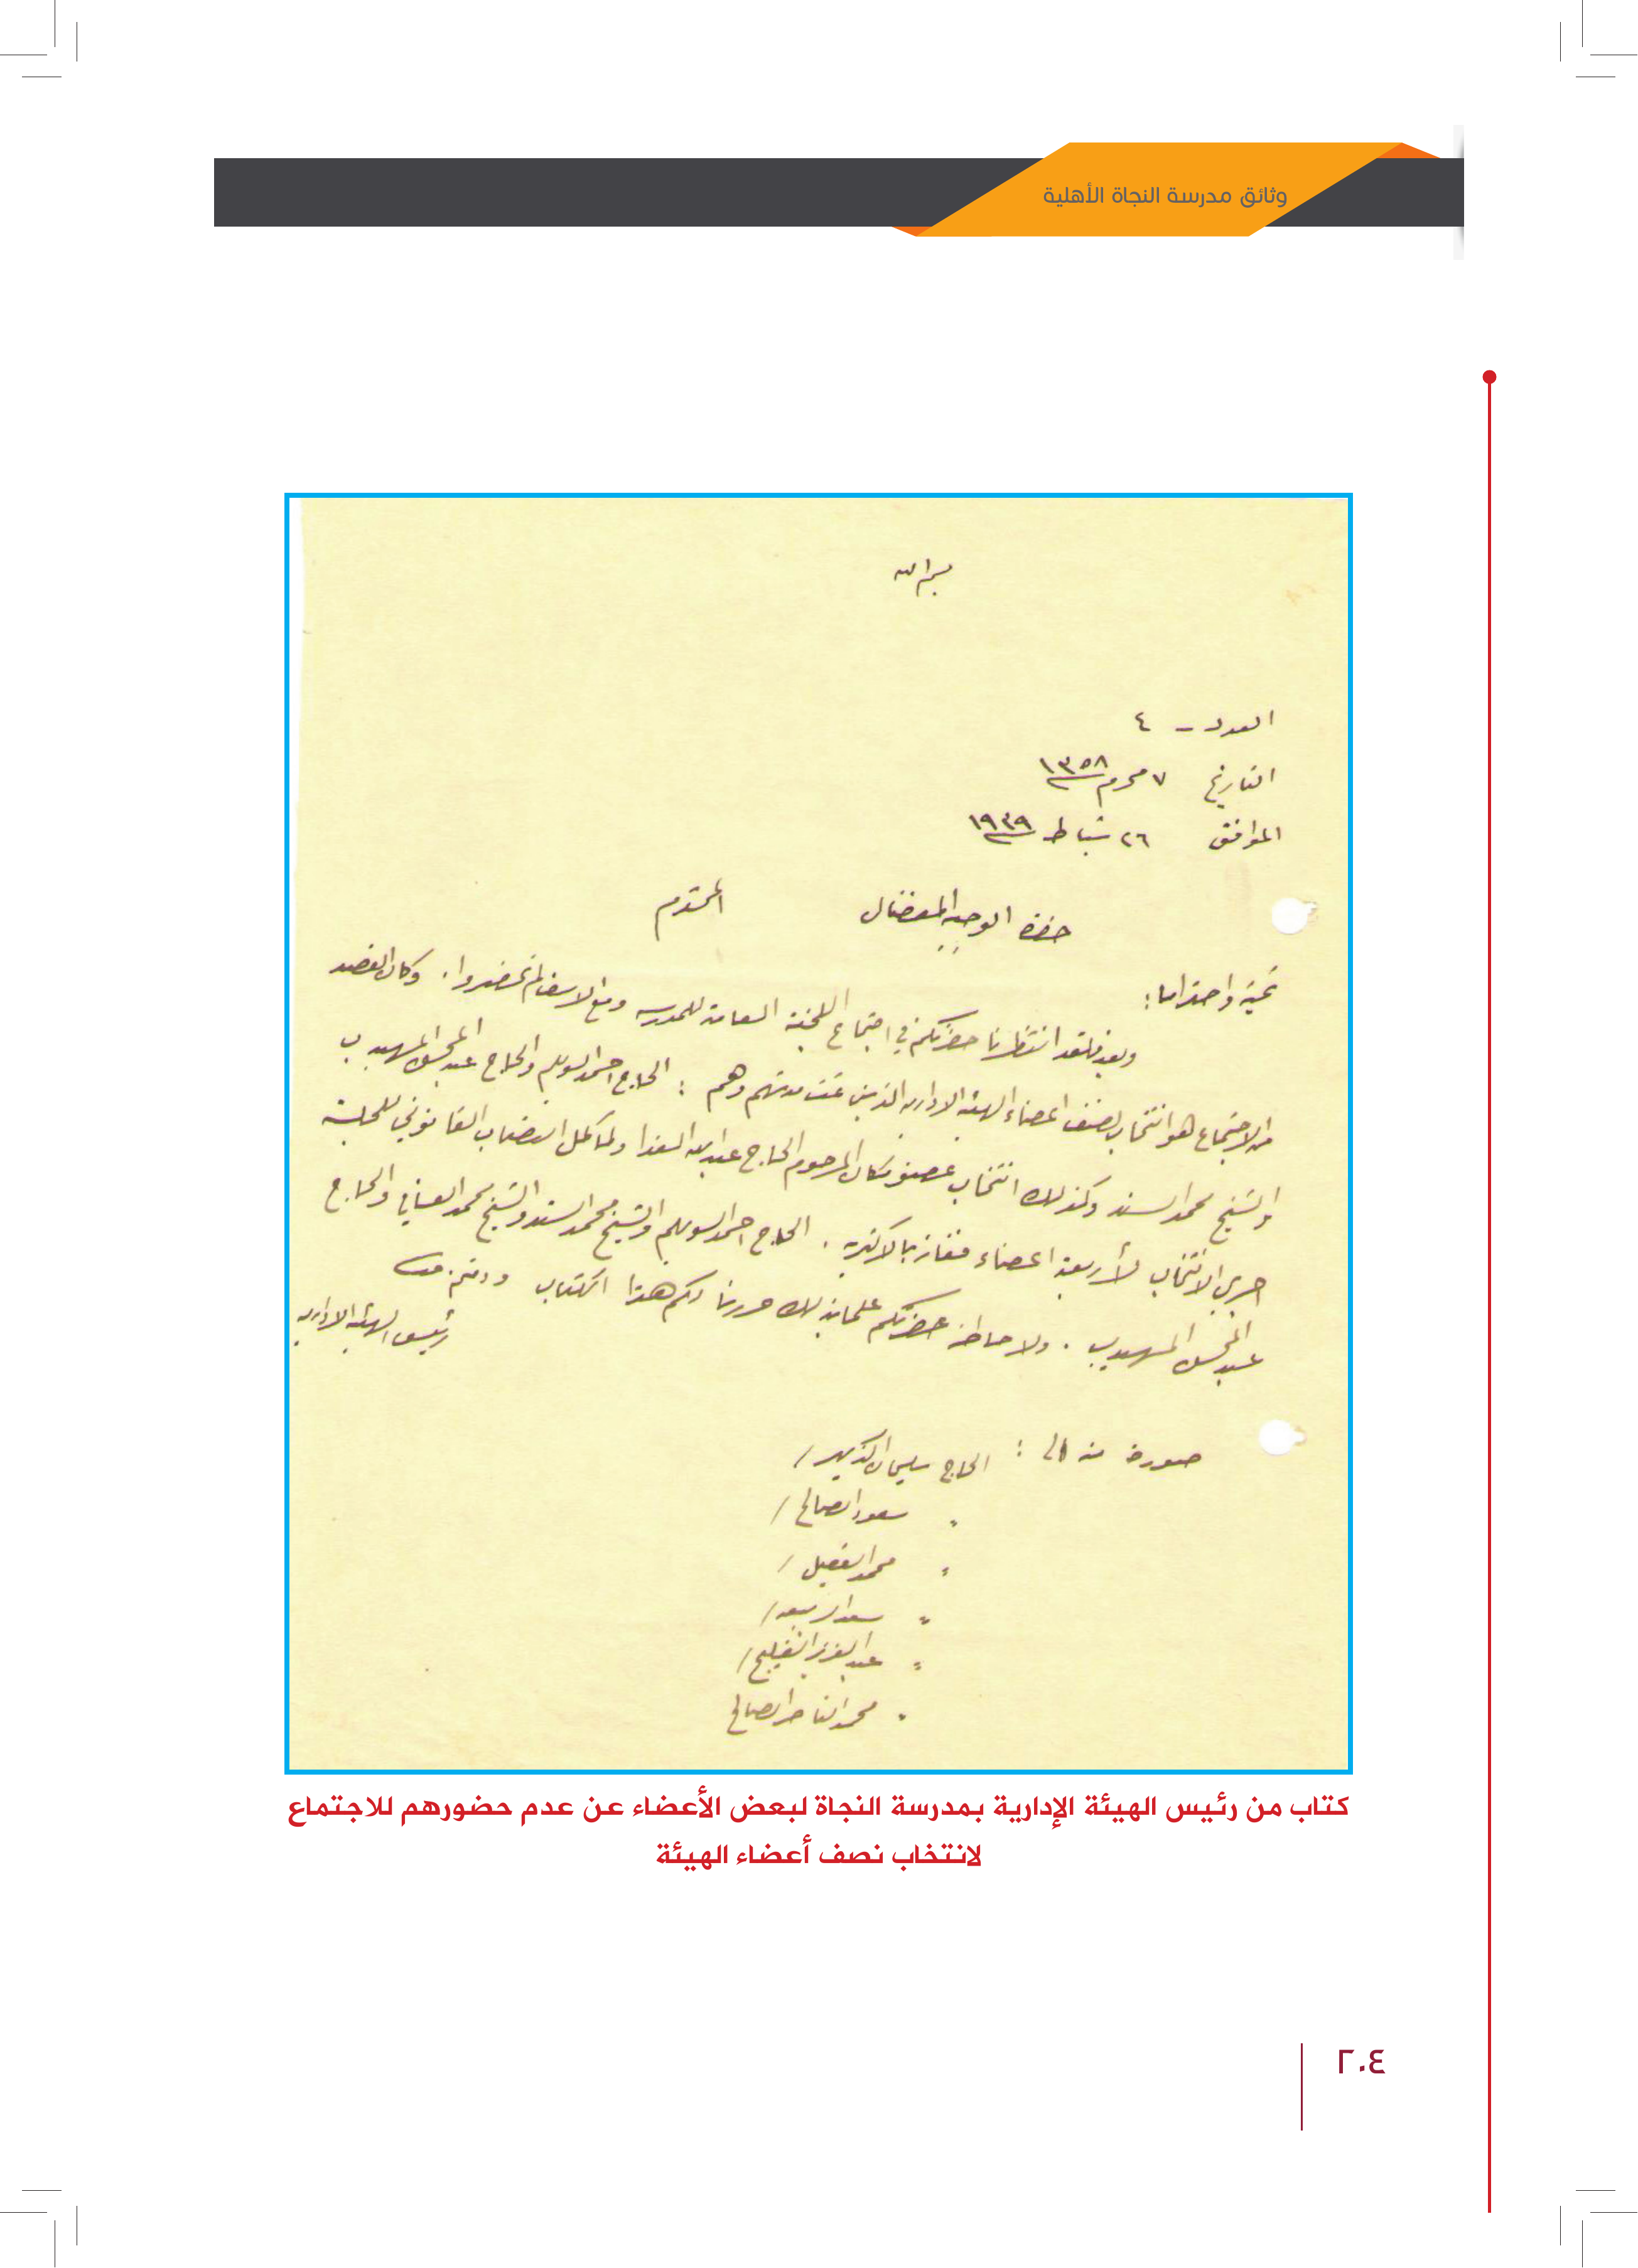 وثائق مدرسة النجاة الأهلية
بسم الله
العدد - ٤
التاريخ ٧ محرم ١٣٥٨
الموافق ٢٦ شباط ١٩٣٩
حضرة الوجيه المفضال المحترم
تحية واحتراما :
وبعد فلقد انتظرنا حضرتكم في اجتماع اللجنة العامة للمدرسه ومع الاسف لم تحضروا . وكان القصد
من الاجتماع هو انتخاب نصف اعضاء الهيئه الاداريه الذين تمت مدتهم وهم : الحاج احمد السويلم والحاج عبد المحسن المهيدب
والشيخ محمد السند وكذلك انتخاب عضو مكان المرحوم الحاج عبد الله ولما كمل النصاب القانوني للجلسة
اجري الانتخاب لأربعة اعضاء ففاز بالاكثريه . الحاج احمد السويلم والشيخ محمد السند والشيخ محمد العسافي والحاج
عبد المحسن المهيدب . ولاحاطة حضرتكم علما بذلك حررنا لكم هذا الكتاب ودمتم
رئيس الهيئه الاداريه
صورة منه الى : الحاج سليمان الذكير /
" سعود الصالح /
" محمد العقيل /
" سعد الربيعه /
" عبد العزيز /
" محمد الناصر الصالح
كتاب من رئيس الهيئة الإدارية بمدرسة النجاة لبعض الأعضاء عن عدم حضورهم للاجتماع
لانتخاب نصف أعضاء الهيئة
٢٠٤